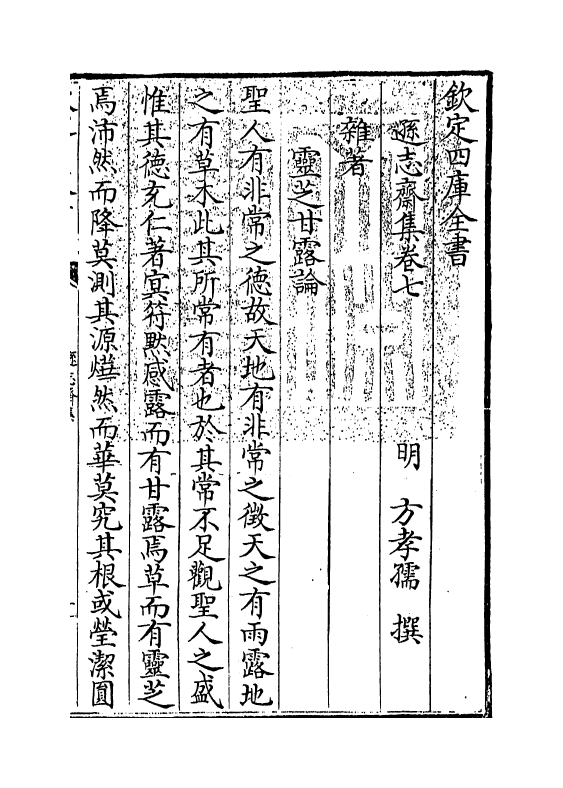 欽定四庫全書
遜志齋集卷七
明 方孝孺 撰
雜著
靈芝甘露論
聖人有非常之德故天地有非常之徵天之有雨露地
之有草木此其所常有者也於其常不足觀聖人之盛
惟其德充仁著冥符黙感露而有甘露焉草而有靈芝
焉沛然而降莫測其源燁然而華莫究其根或瑩潔圓